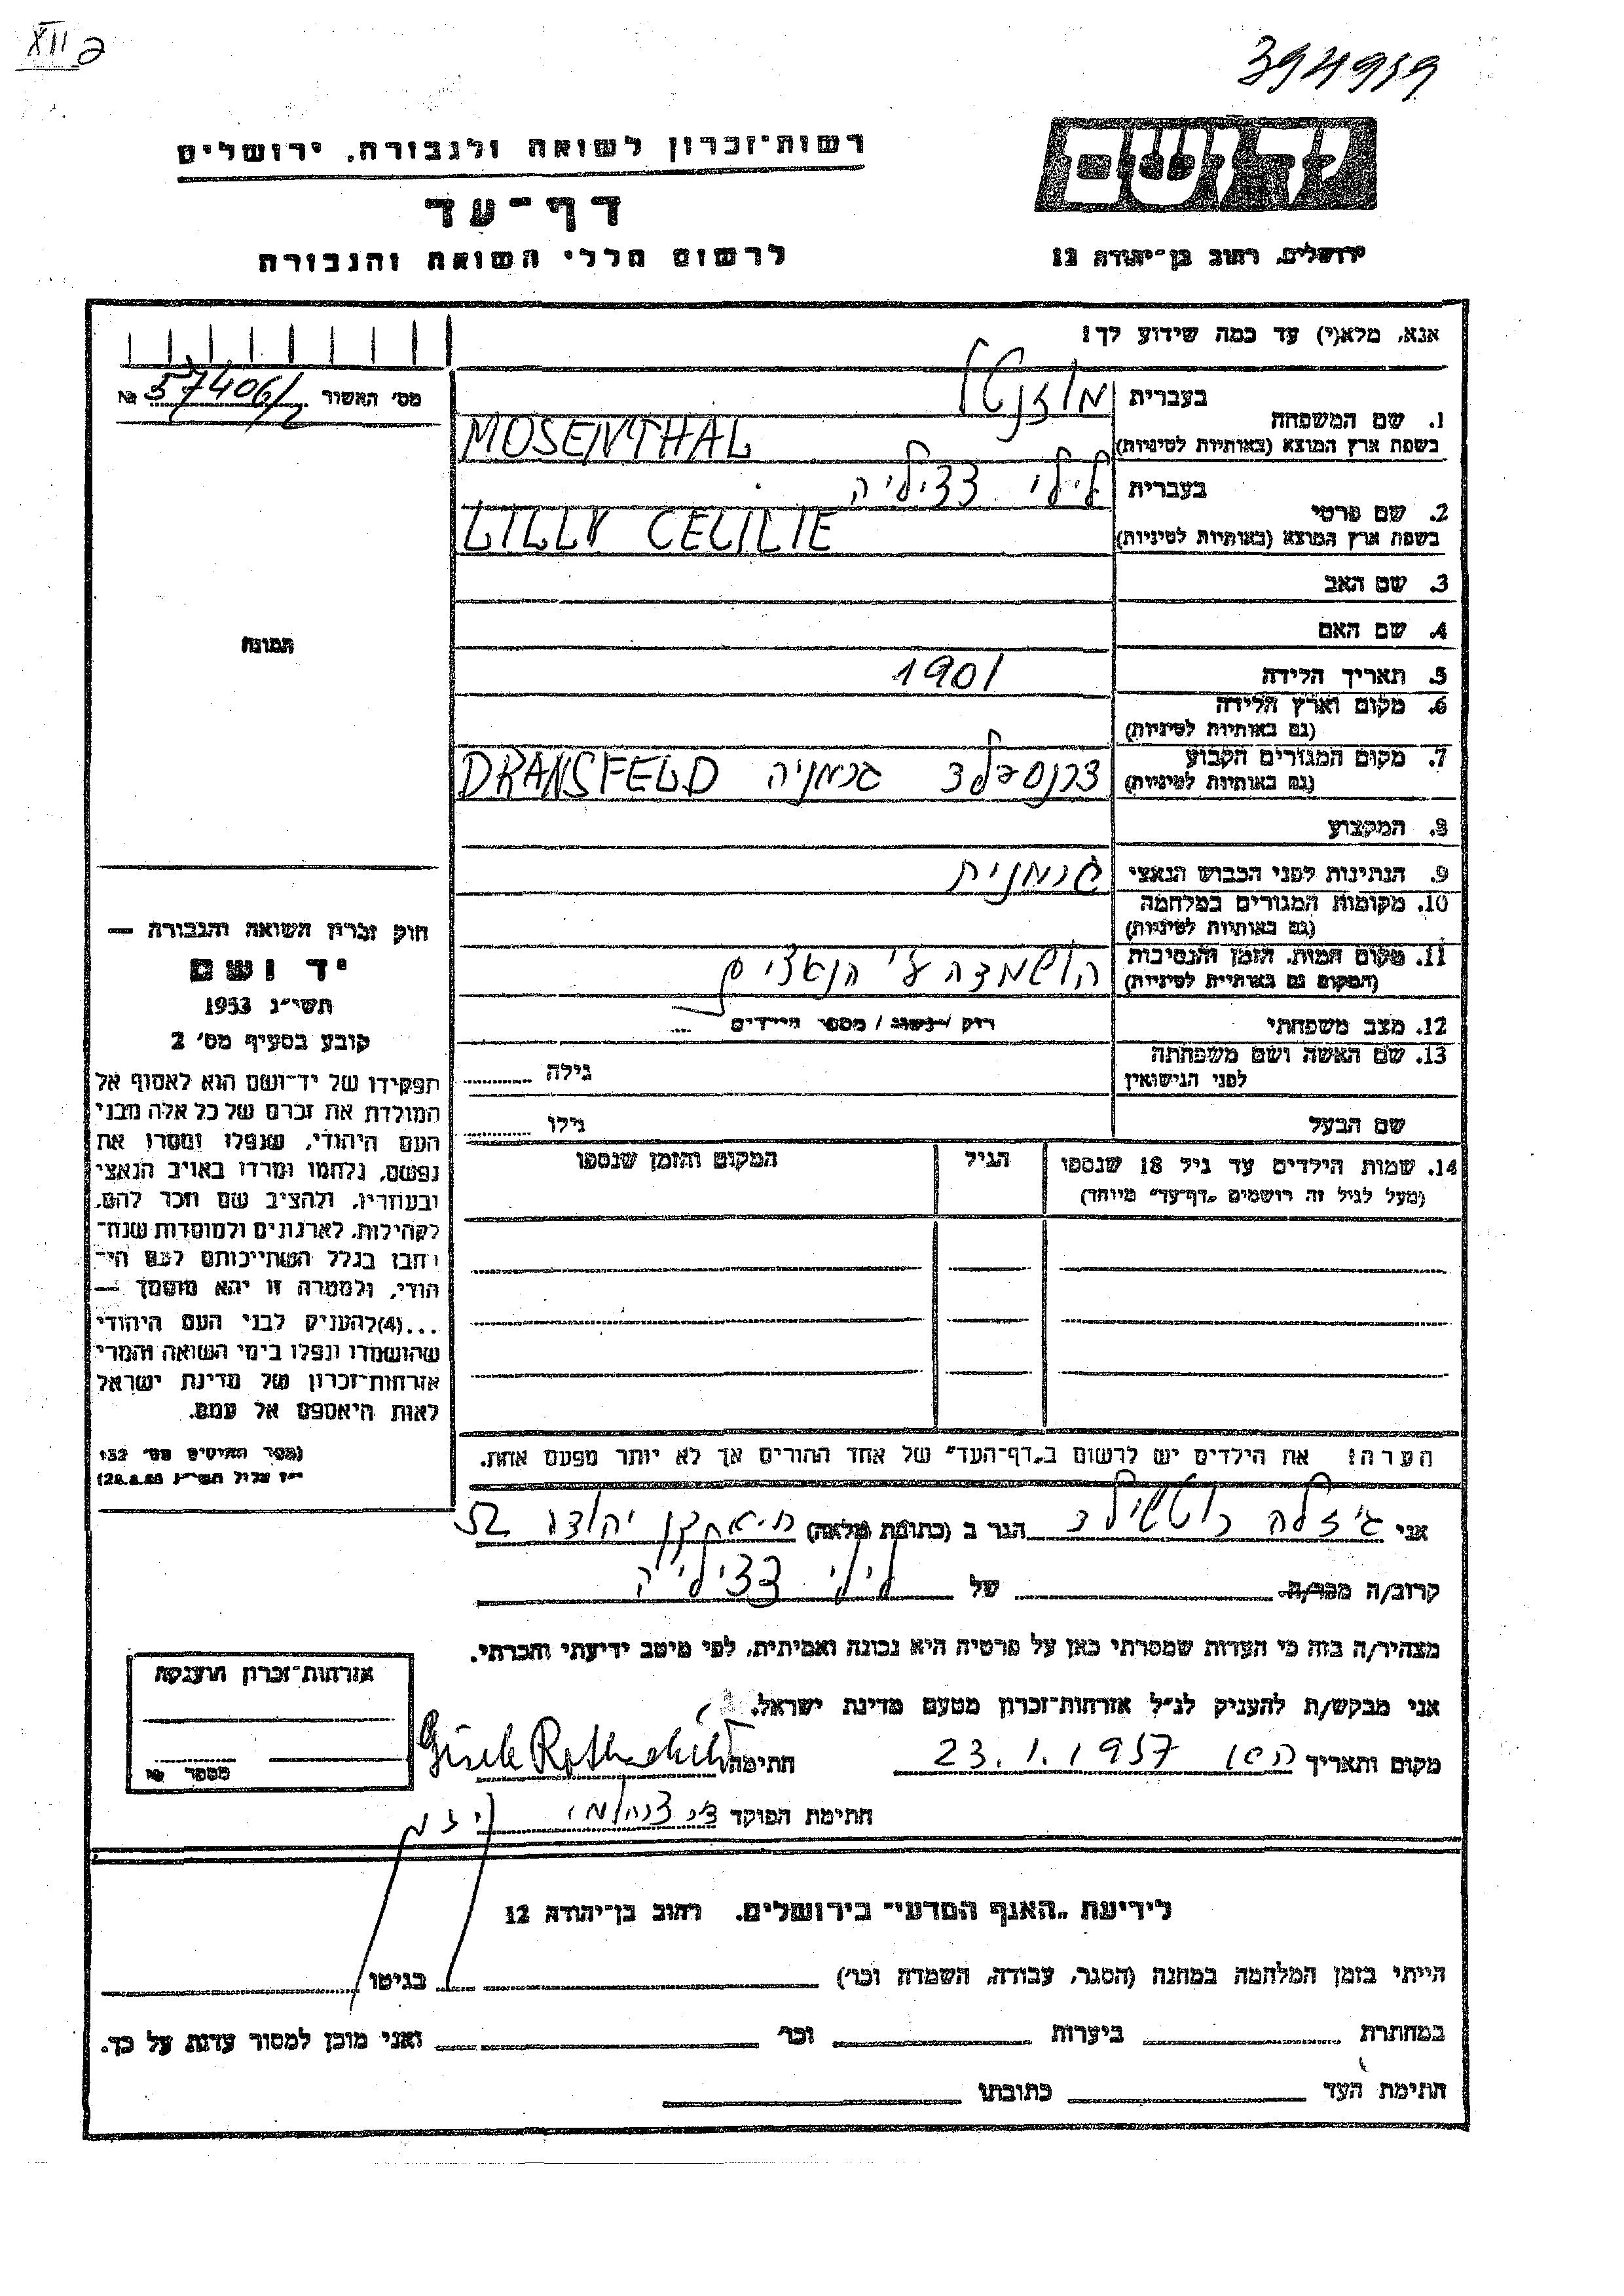 XII
394959
רשות־זכרון לשואה ולגבורה, ירושלים
דף־עד
לרשום חללי השואה והגבורה
ידושם
ירושלים, רחוב בן־יהודה 12
אנא, מלא(י) עד כמה שידוע לך!
מס' האשור 57406/2 №
1. שם המשפחה
בעברית מוזנטל
בשפת ארץ המוצא (באותיות לטיניות) MOSENTHAL
2. שם פרטי
בעברית לילי צציליה
בשפת ארץ המוצא (באותיות לטיניות) LILLY CECILIE
3. שם האב
4. שם האם
תמונה
5. תאריך הלידה 1901
6. מקום וארץ הלידה
(גם באותיות לטיניות)
7. מקום המגורים הקבוע
(גם באותיות לטיניות) דרנספלד גרמניה DRANSFELD
8. המקצוע
9. הנתינות לפני הכבוש הנאצי גרמנית
10. מקומות המגורים במלחמה
(גם באותיות לטיניות)
11. מקום המות, הזמן והנסיבות
(המקום גם באותיות לטיניות) הושמדה ע"י הנאצים
12. מצב משפחתי רוק / נשוי / מספר הילדים
13. שם האשה ושם משפחתה
לפני הנישואין גילה
שם הבעל גילו
14. שמות הילדים עד גיל 18 שנספו הגיל המקום והזמן שנספו
(מעל לגיל זה רושמים "דף־עד" מיוחד)
חוק זכרון השואה והגבורה —
יד ושם
תשי"ג 1953
קובע בסעיף מס' 2
תפקידו של יד־ושם הוא לאסוף אל
המולדת את זכרם של כל אלה מבני
העם היהודי, שנפלו ומסרו את
נפשם, נלחמו ומרדו באויב הנאצי
ובעוזריו, ולהציב שם וזכר להם,
לקהילות, לארגונים ולמוסדות שנח־
רבו בגלל השתייכותם לעם הי־
הודי, ולמטרה זו יהא מוסמך —
...(4)להעניק לבני העם היהודי
שהושמדו ונפלו בימי השואה והמרי
אזרחות־זכרון של מדינת ישראל
לאות היאספם אל עמם.
(ספר החוקים מס' 132
י"ז אלול תשי"ג 28.8.53)
הערה: את הילדים יש לרשום ב"דף־העד" של אחד ההורים אך לא יותר מפעם אחת.
אני גיזלה רוטשילד הגר ב (כתובת מלאה) יהודה 52
קרוב/ה מכר/ה של לילי צציליה
מצהיר/ה בזה כי העדות שמסרתי כאן על פרטיה היא נכונה ואמיתית, לפי מיטב ידיעתי והכרתי.
אני מבקש/ת להעניק לנ"ל אזרחות־זכרון מטעם מדינת ישראל.
מקום ותאריך 23.1.1957 חתימה Gisele Rothschild
חתימת הפוקד
אזרחות־זכרון הוענקה
מספר №
לידיעת "האגף המדעי" בירושלים, רחוב בן־יהודה 12
הייתי בזמן המלחמה במחנה (הסגר, עבודה, השמדה וכו') בגיטו
במחתרת ביערות וכו' ואני מוכן למסור עדות על כך.
חתימת העד כתובתו